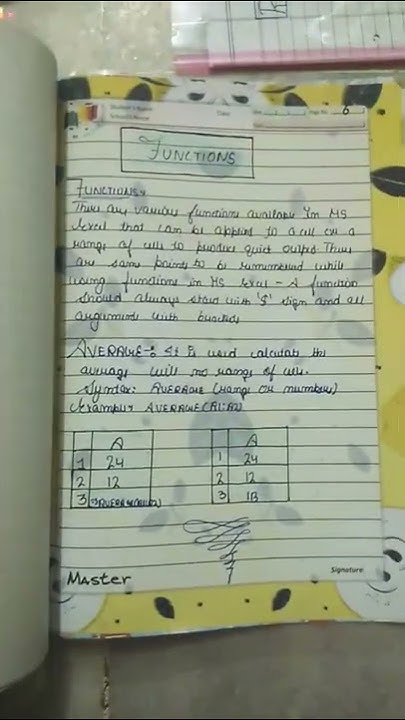 Student's Name
School's Name
Date
Page No. 6
FUNCTIONS
FUNCTIONS
There are various functions available in MS
Excel that can be applied to a cell or a
range of cells to produce quick output There
are some points to be remembered while
using functions in MS Excel - A function
should always start with '$' sign and all
arguments with brackets
AVERAGE:- It is used calculate the
average will no range of cells.
Syntax: AVERAGE (range or numbers)
Example:- AVERAGE (A1:A2)
A A
1 24 1 24
2 12 2 12
3 3 18
Master
Signature